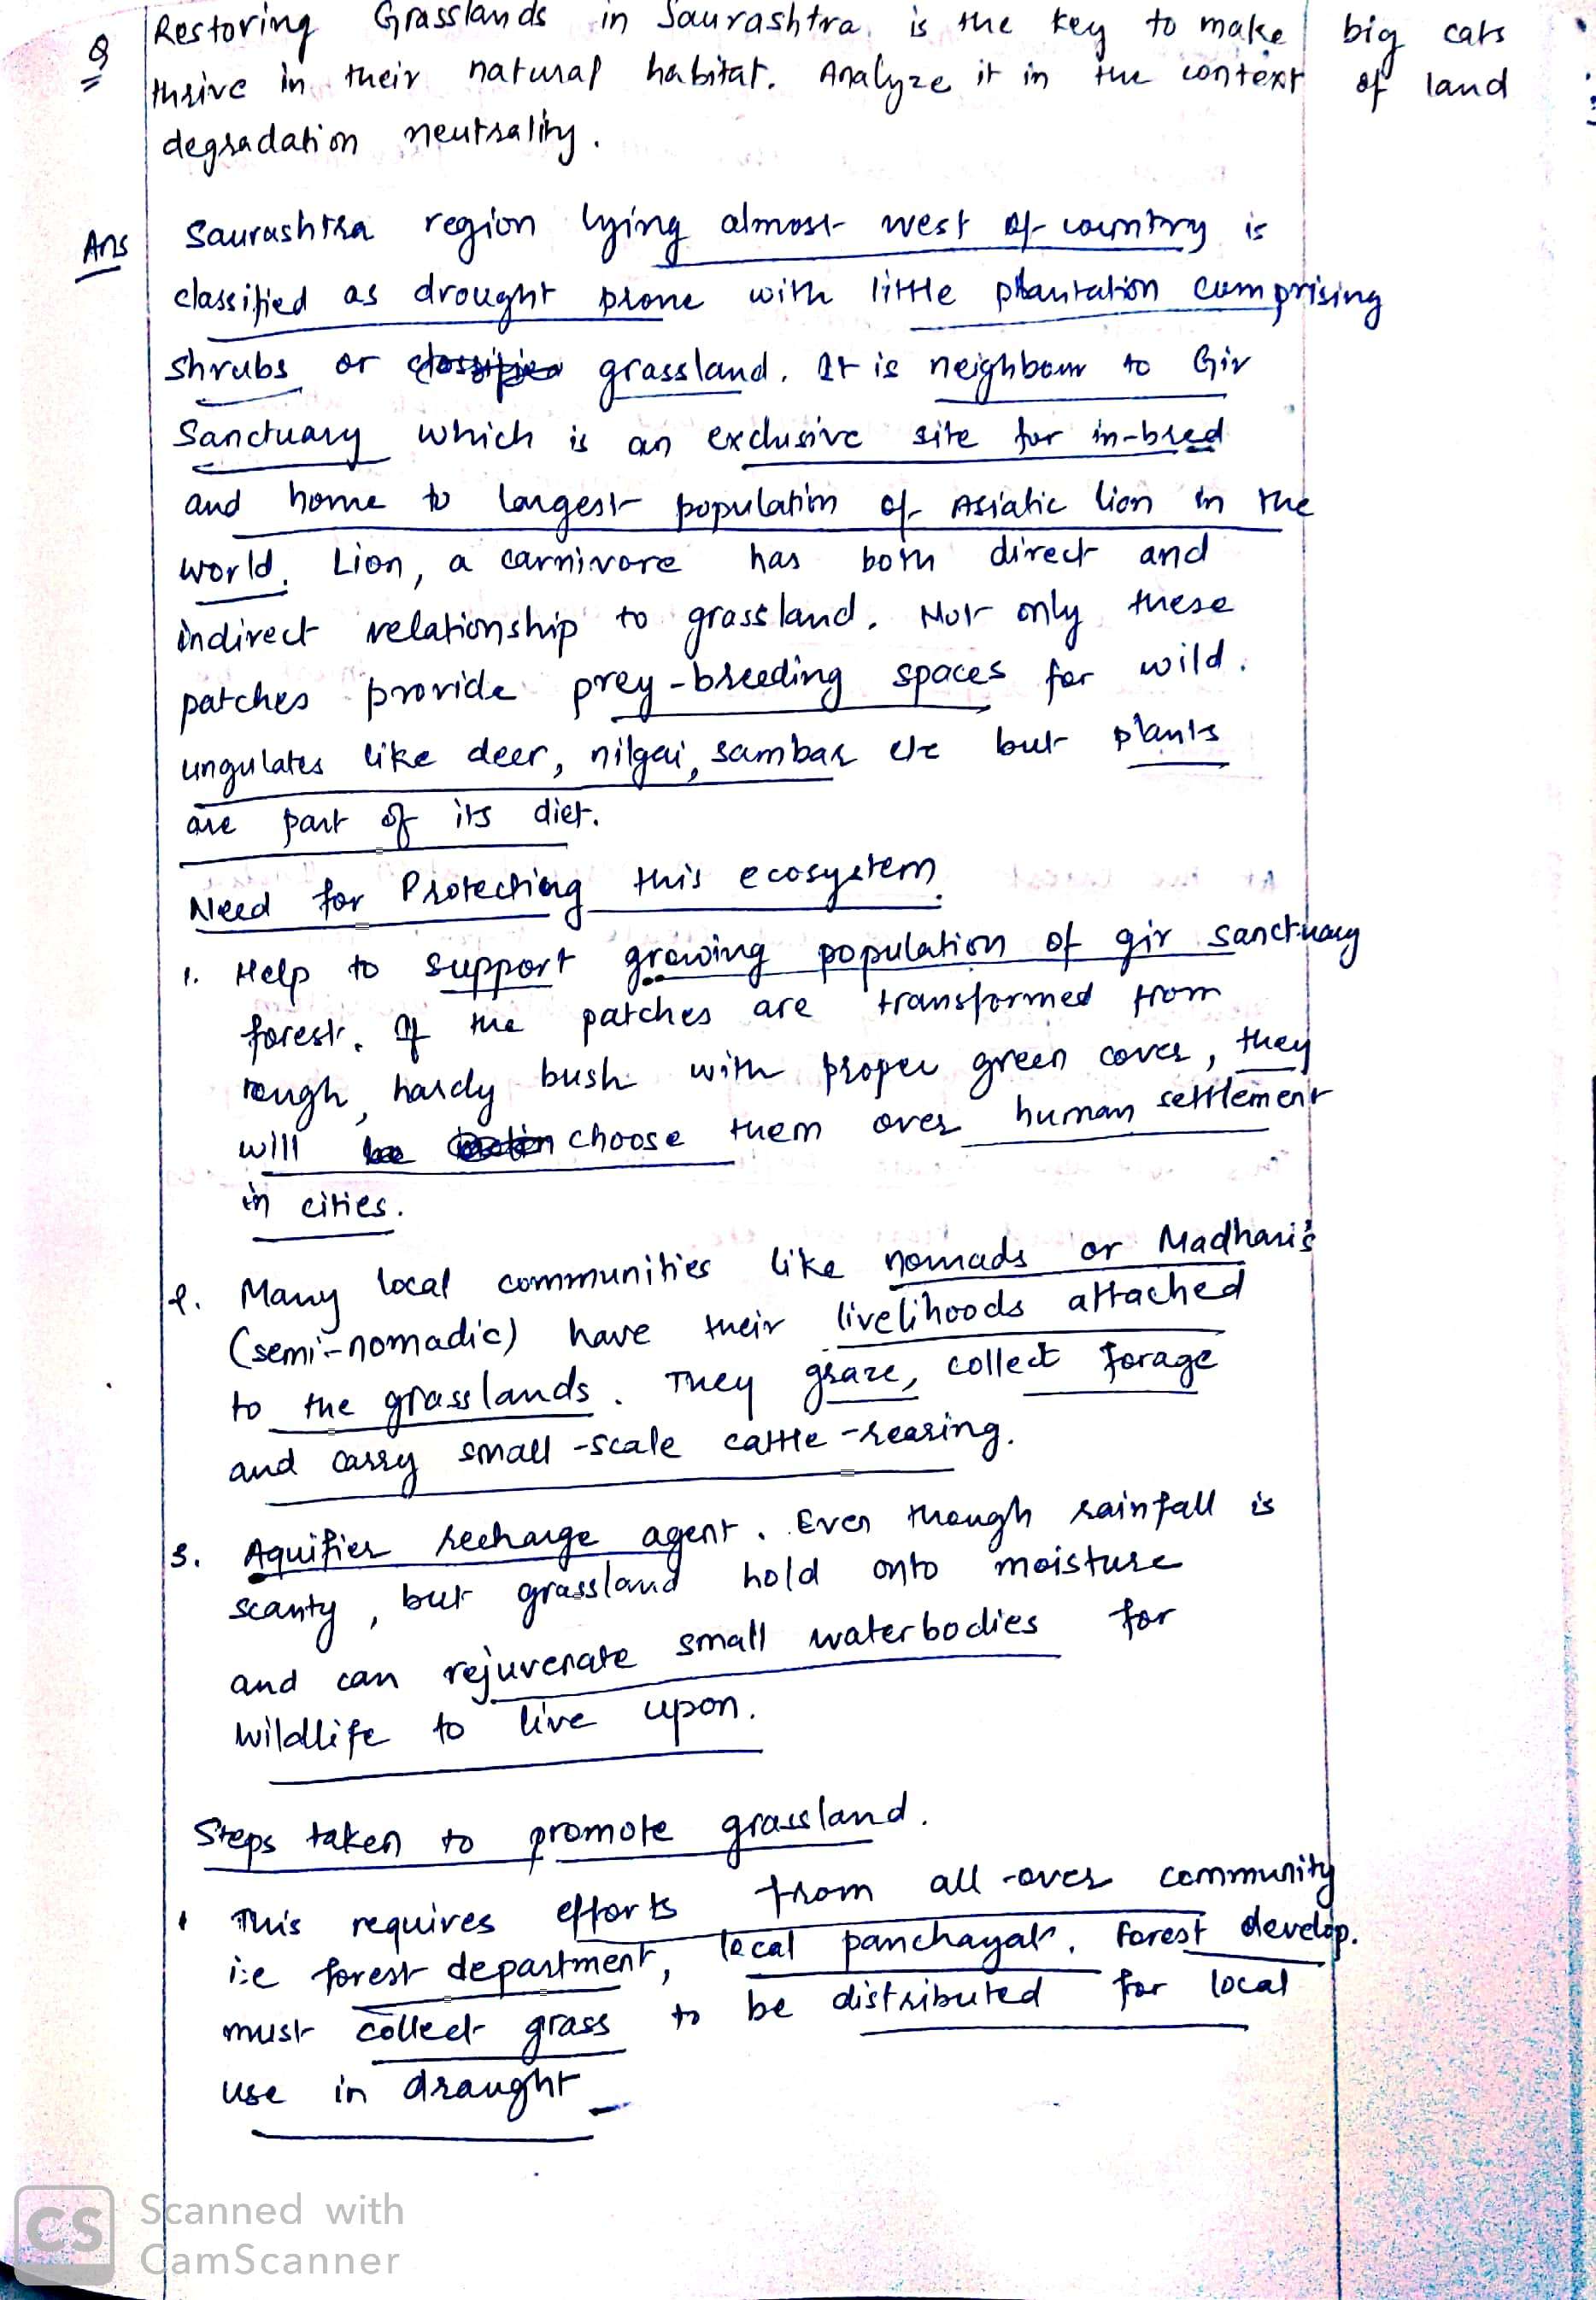 Q Restoring Grasslands in Saurashtra is the key to make big cats
thrive in their natural habitat. Analyze it in the context of land
degradation neutrality.
Ans Saurashtra region lying almost west of country is
classified as drought prone with little plantation comprising
shrubs or classified grassland. It is neighbour to Gir
Sanctuary which is an exclusive site for in-bred
and home to largest population of Asiatic lion in the
world. Lion, a carnivore has both direct and
indirect relationship to grassland. Not only these
patches provide prey-breeding spaces for wild.
ungulates like deer, nilgai, sambar etc but plants
are part of its diet.
Need for Protecting this ecosystem.
1. Help to support growing population of gir sanctuary
forest. If the patches are transformed from
rough, hardy bush with proper green cover, they
will be choose them over human settlement
in cities.
2. Many local communities like nomads or Madhari's
(semi-nomadic) have their livelihoods attached
to the grasslands. They graze, collect forage
and carry small-scale cattle-rearing.
3. Aquifier recharge agent. Even though rainfall is
scanty, but grassland hold onto moisture
and can rejuvenate small waterbodies for
wildlife to live upon.
Steps taken to promote grassland.
1 This requires efforts from all-over community
i.e forest department, local panchayat. Forest develop.
must collect grass to be distributed for local
use in draught
CS Scanned with
CamScanner